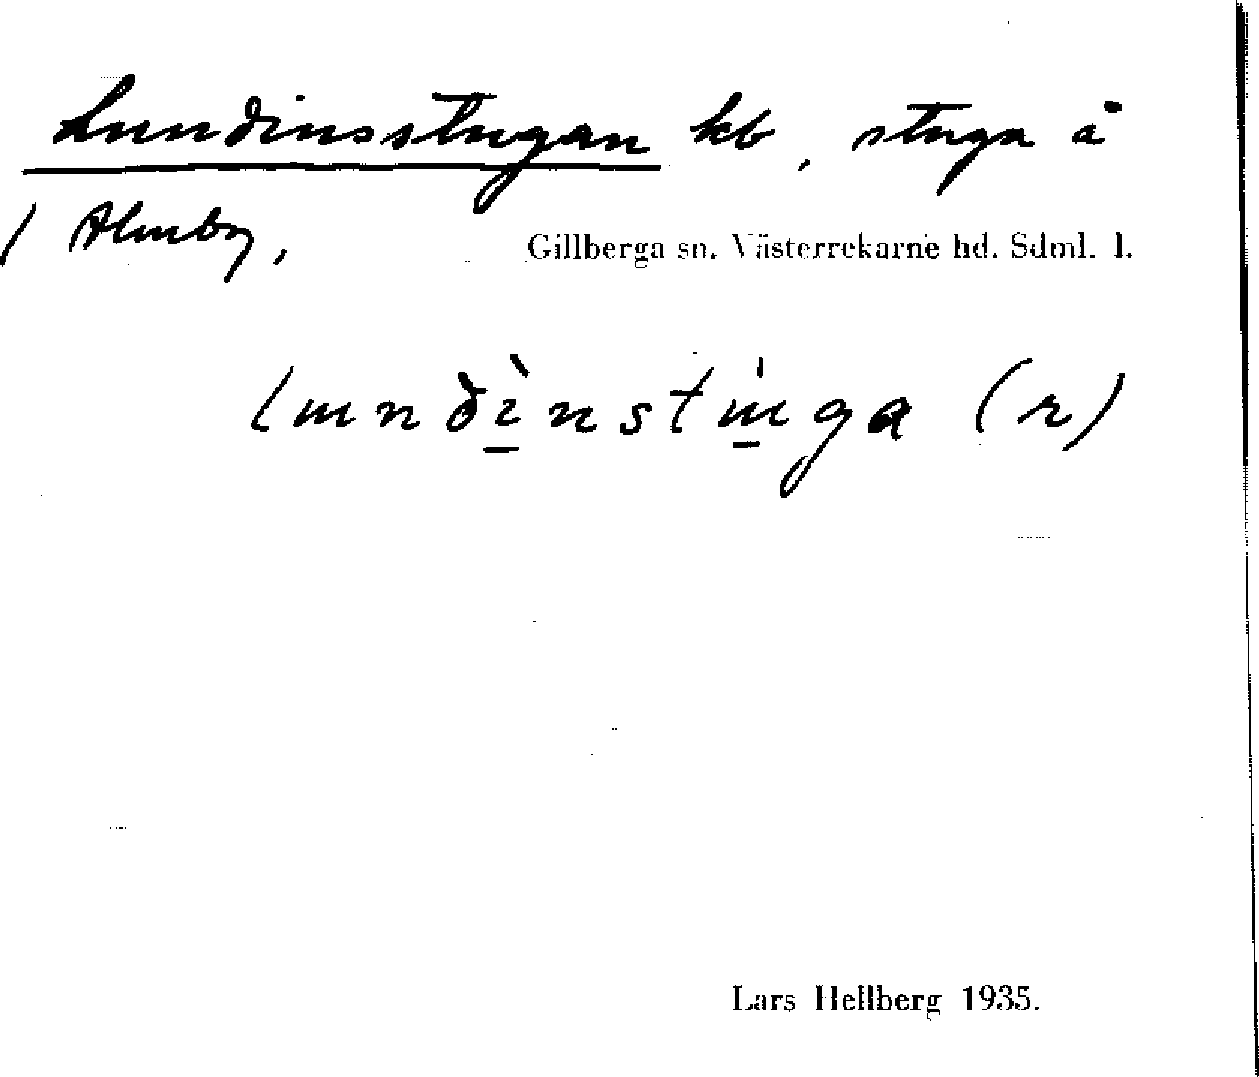 Lundinsstugan kb, stuga å
/ Almby,
Gillberga sn. Västerrekarne hd. Sdml. l.
(r)
Lars Hellberg 1935.